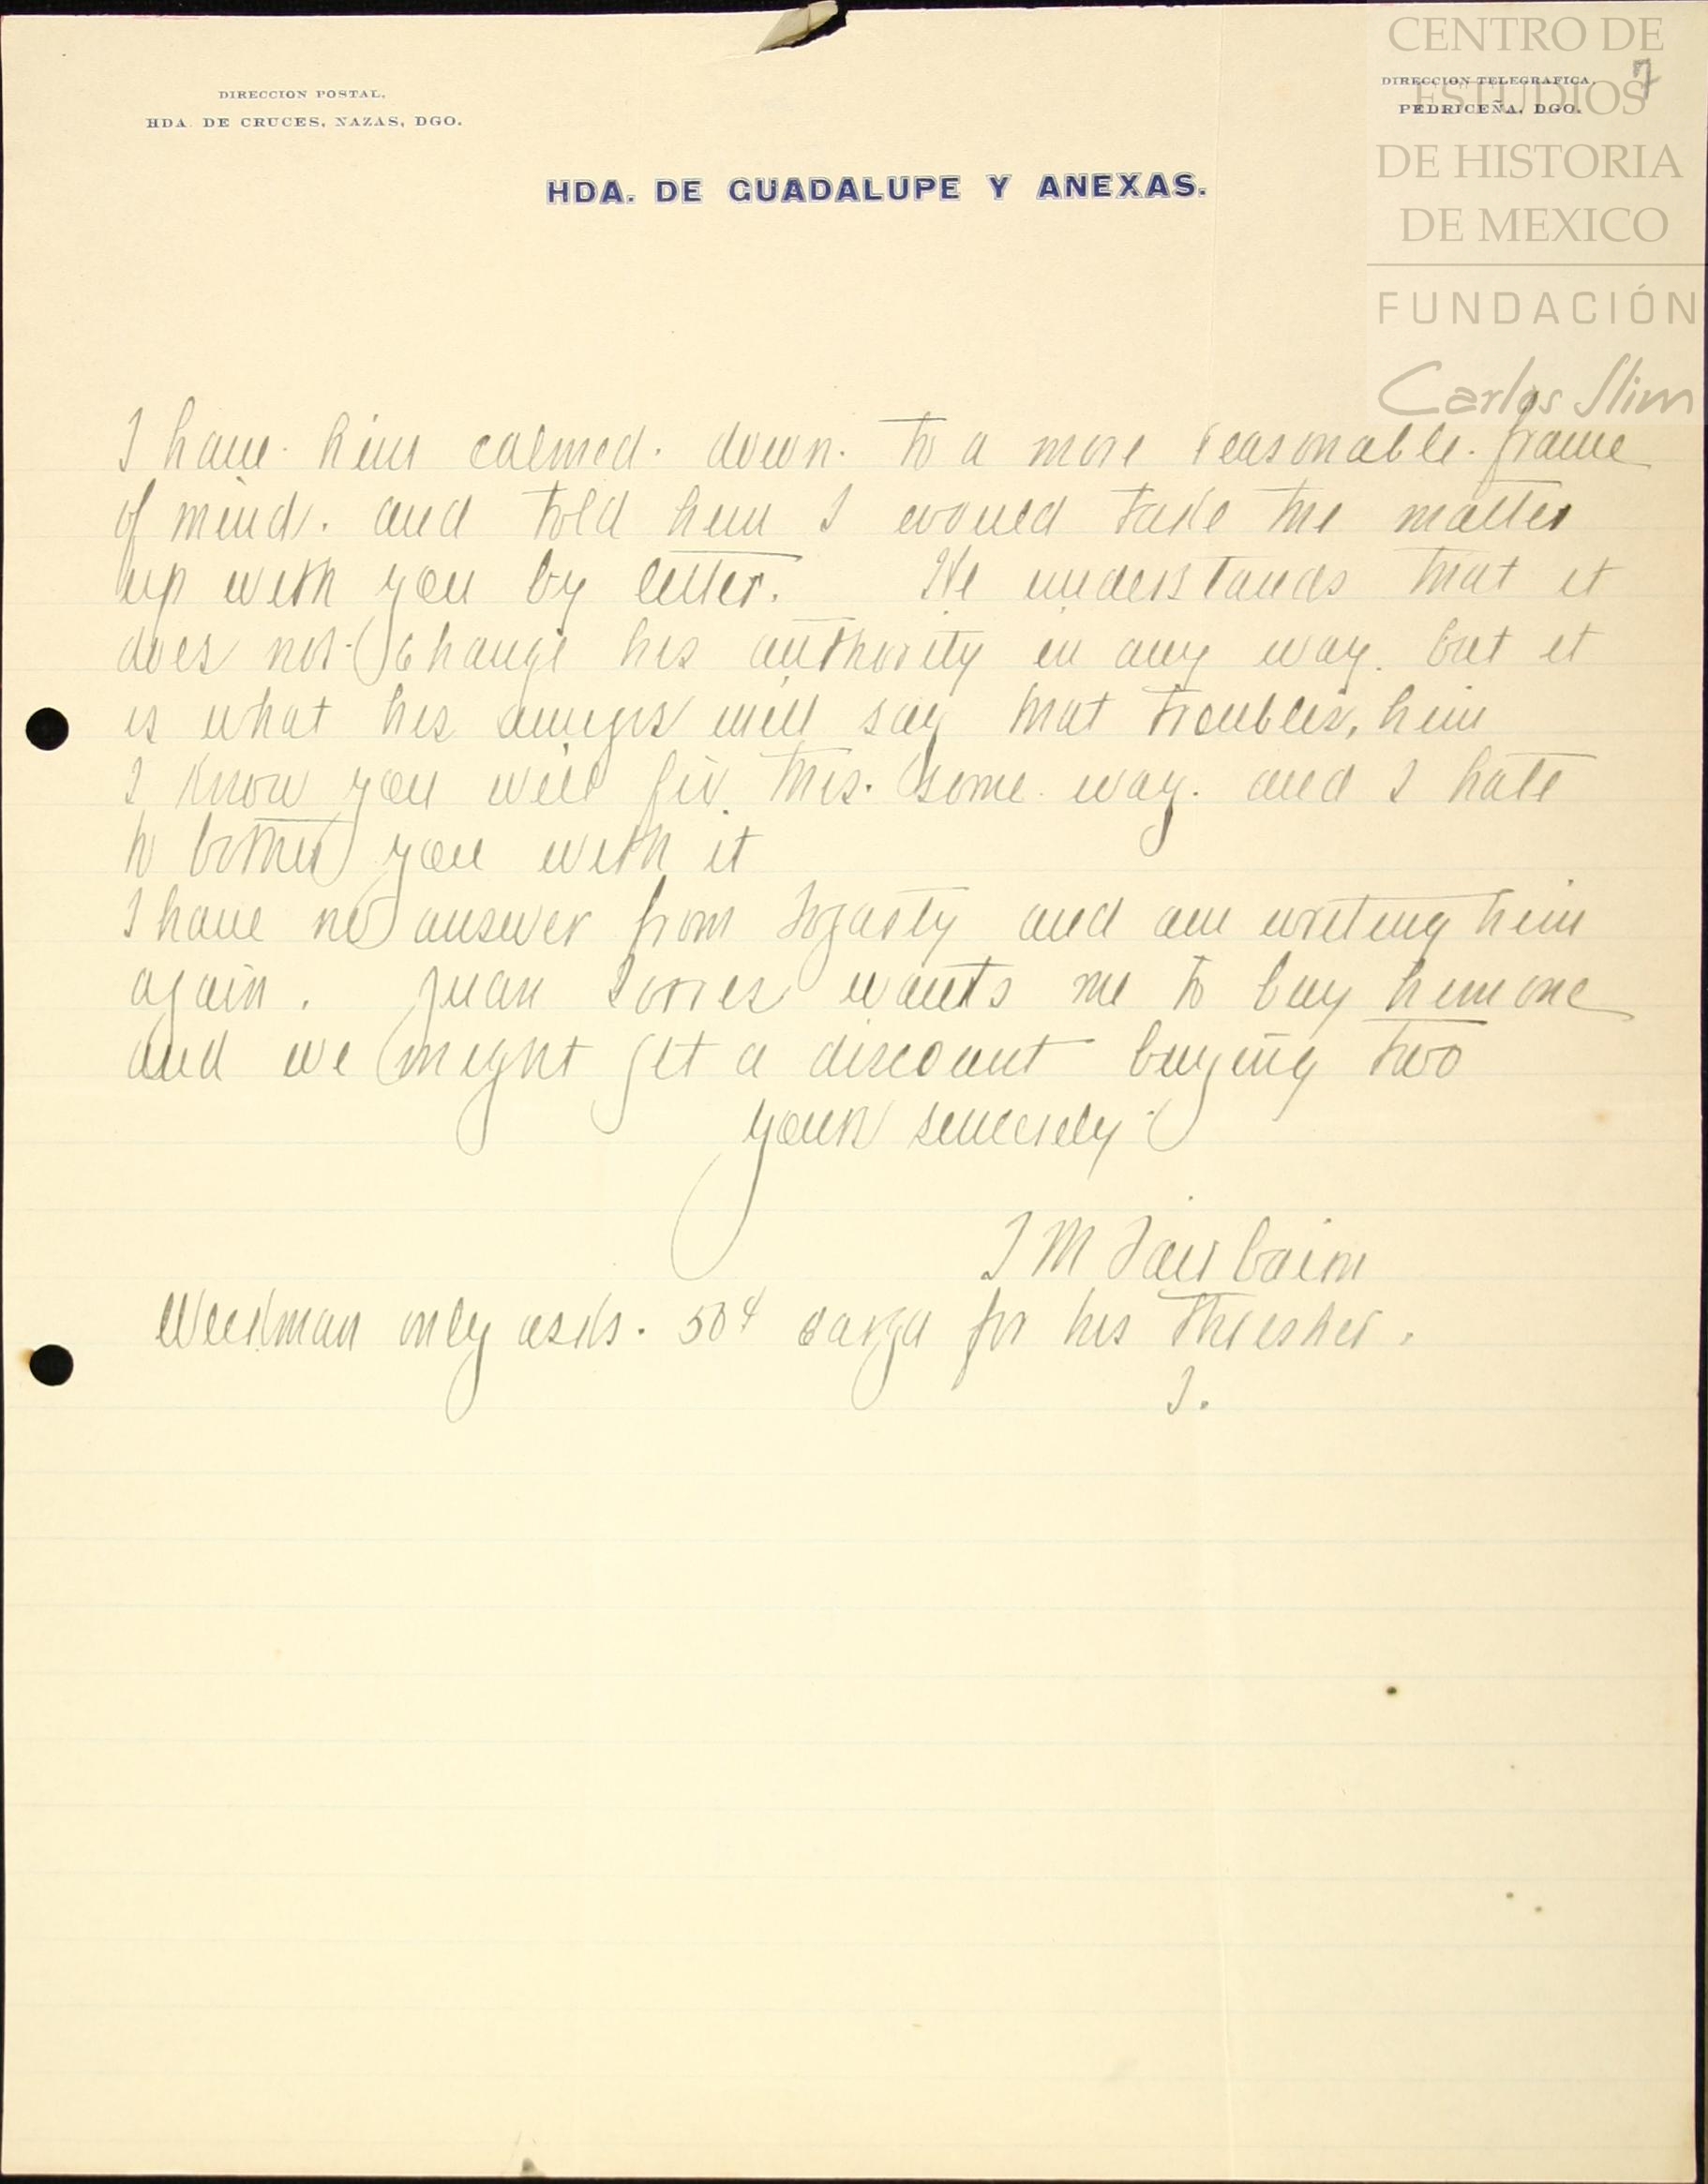 CENTRO DE
ESTUDIOS
DE HISTORIA
DE MEXICO
FUNDACIÓN
Carlos Slim
7
DIRECCION POSTAL,
HDA. DE CRUCES, NAZAS, DGO.
DIRECCION TELEGRAFICA,
PEDRICEÑA, DGO.
HDA. DE GUADALUPE Y ANEXAS.
I have him calmed. down. to a more reasonable. frame
of mind. and told him I would take the matter
up with you by letter. He understands that it
does not change his authority in any way. but it
is what his amigos will say that troubles, him
I know you will fix this. some way. and I hate
to bother you with it
I have no answer from Fogarty and am writing him
again. Juan Torres wants me to buy him one
and we might get a discount buying two
yours sincerely
J M Fairbairn
only asks. 50¢ carga for his thresher.